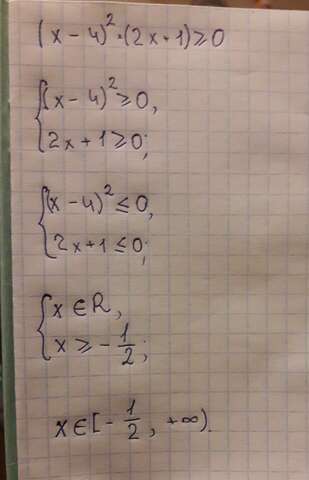 (x - 4)² · (2x + 1) ⩾ 0
{(x - 4)² ⩾ 0,
2x + 1 ⩾ 0;
{(x - 4)² ≤ 0,
2x + 1 ≤ 0;
{x ∈ R,
x ⩾ - 1/2;
x ∈ [- 1/2, +∞).